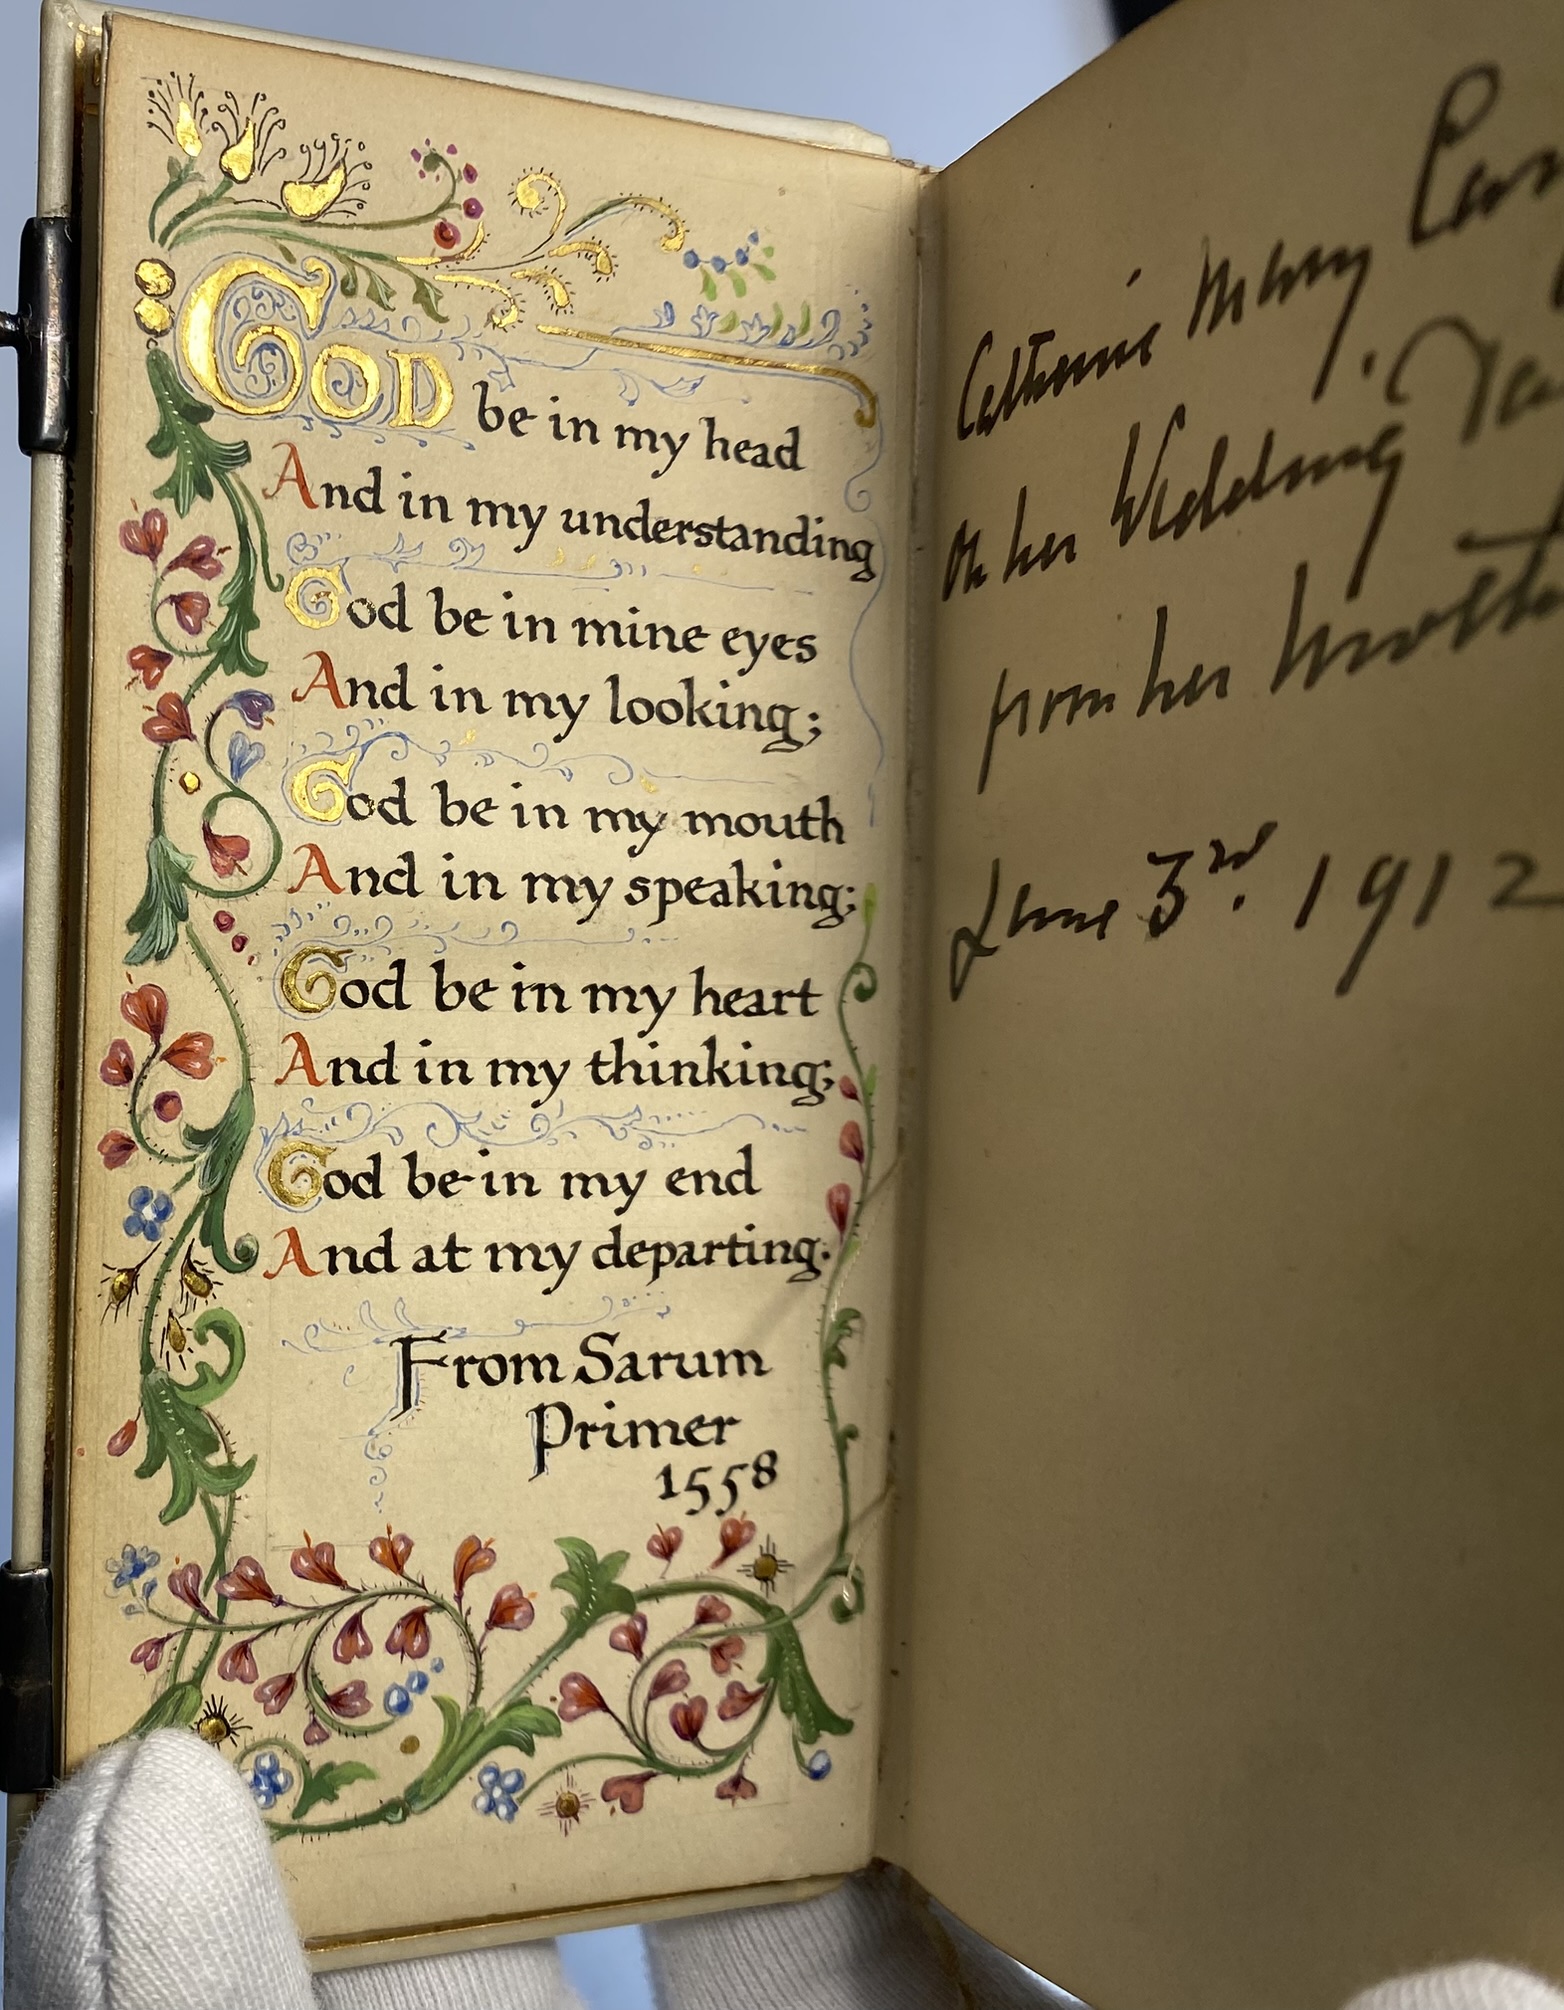 GOD be in my head
And in my understanding
God be in mine eyes
And in my looking;
God be in my mouth
And in my speaking;
God be in my heart
And in my thinking;
God be in my end
And at my departing.
From Sarum
Primer
1558
Catherine Mary
on her Wedding
from her
June 3rd. 1912